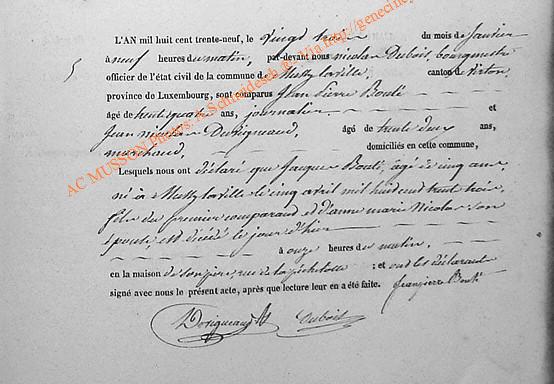 L'AN mil huit cent trente-neuf, le vingt trois du mois de Janvier
à neuf heures du matin, par-devant nous nicolas Dubois, bourgmestre
5 officier de l'état civil de la commune de Mussy laville, canton de Virton,
province de Luxembourg, sont comparus Jean Pierre Bouti
âgé de trente quatre ans, journalier et
Jean nicolas Dorigneaud, âgé de trente deux ans,
marchand, domiciliés en cette commune,
Lesquels nous ont déclaré que Jacques Bouti, agé de cinq ans
né à Mussy laville le cinq avril mil huit cent trente trois,
fils du premier comparant et d'anne marie Nicolas son
épouse, est décédé le jour d'hier
à onze heures du matin,
en la maison de son père, rue de la : et ont les déclarants
signé avec nous le présent acte, après que lecture leur en a été faite. Jeanpierre Bouti
Dorigneaud Dubois
AC MUSSON Photos: A. Schneidesch &amp; Via http://geneciney